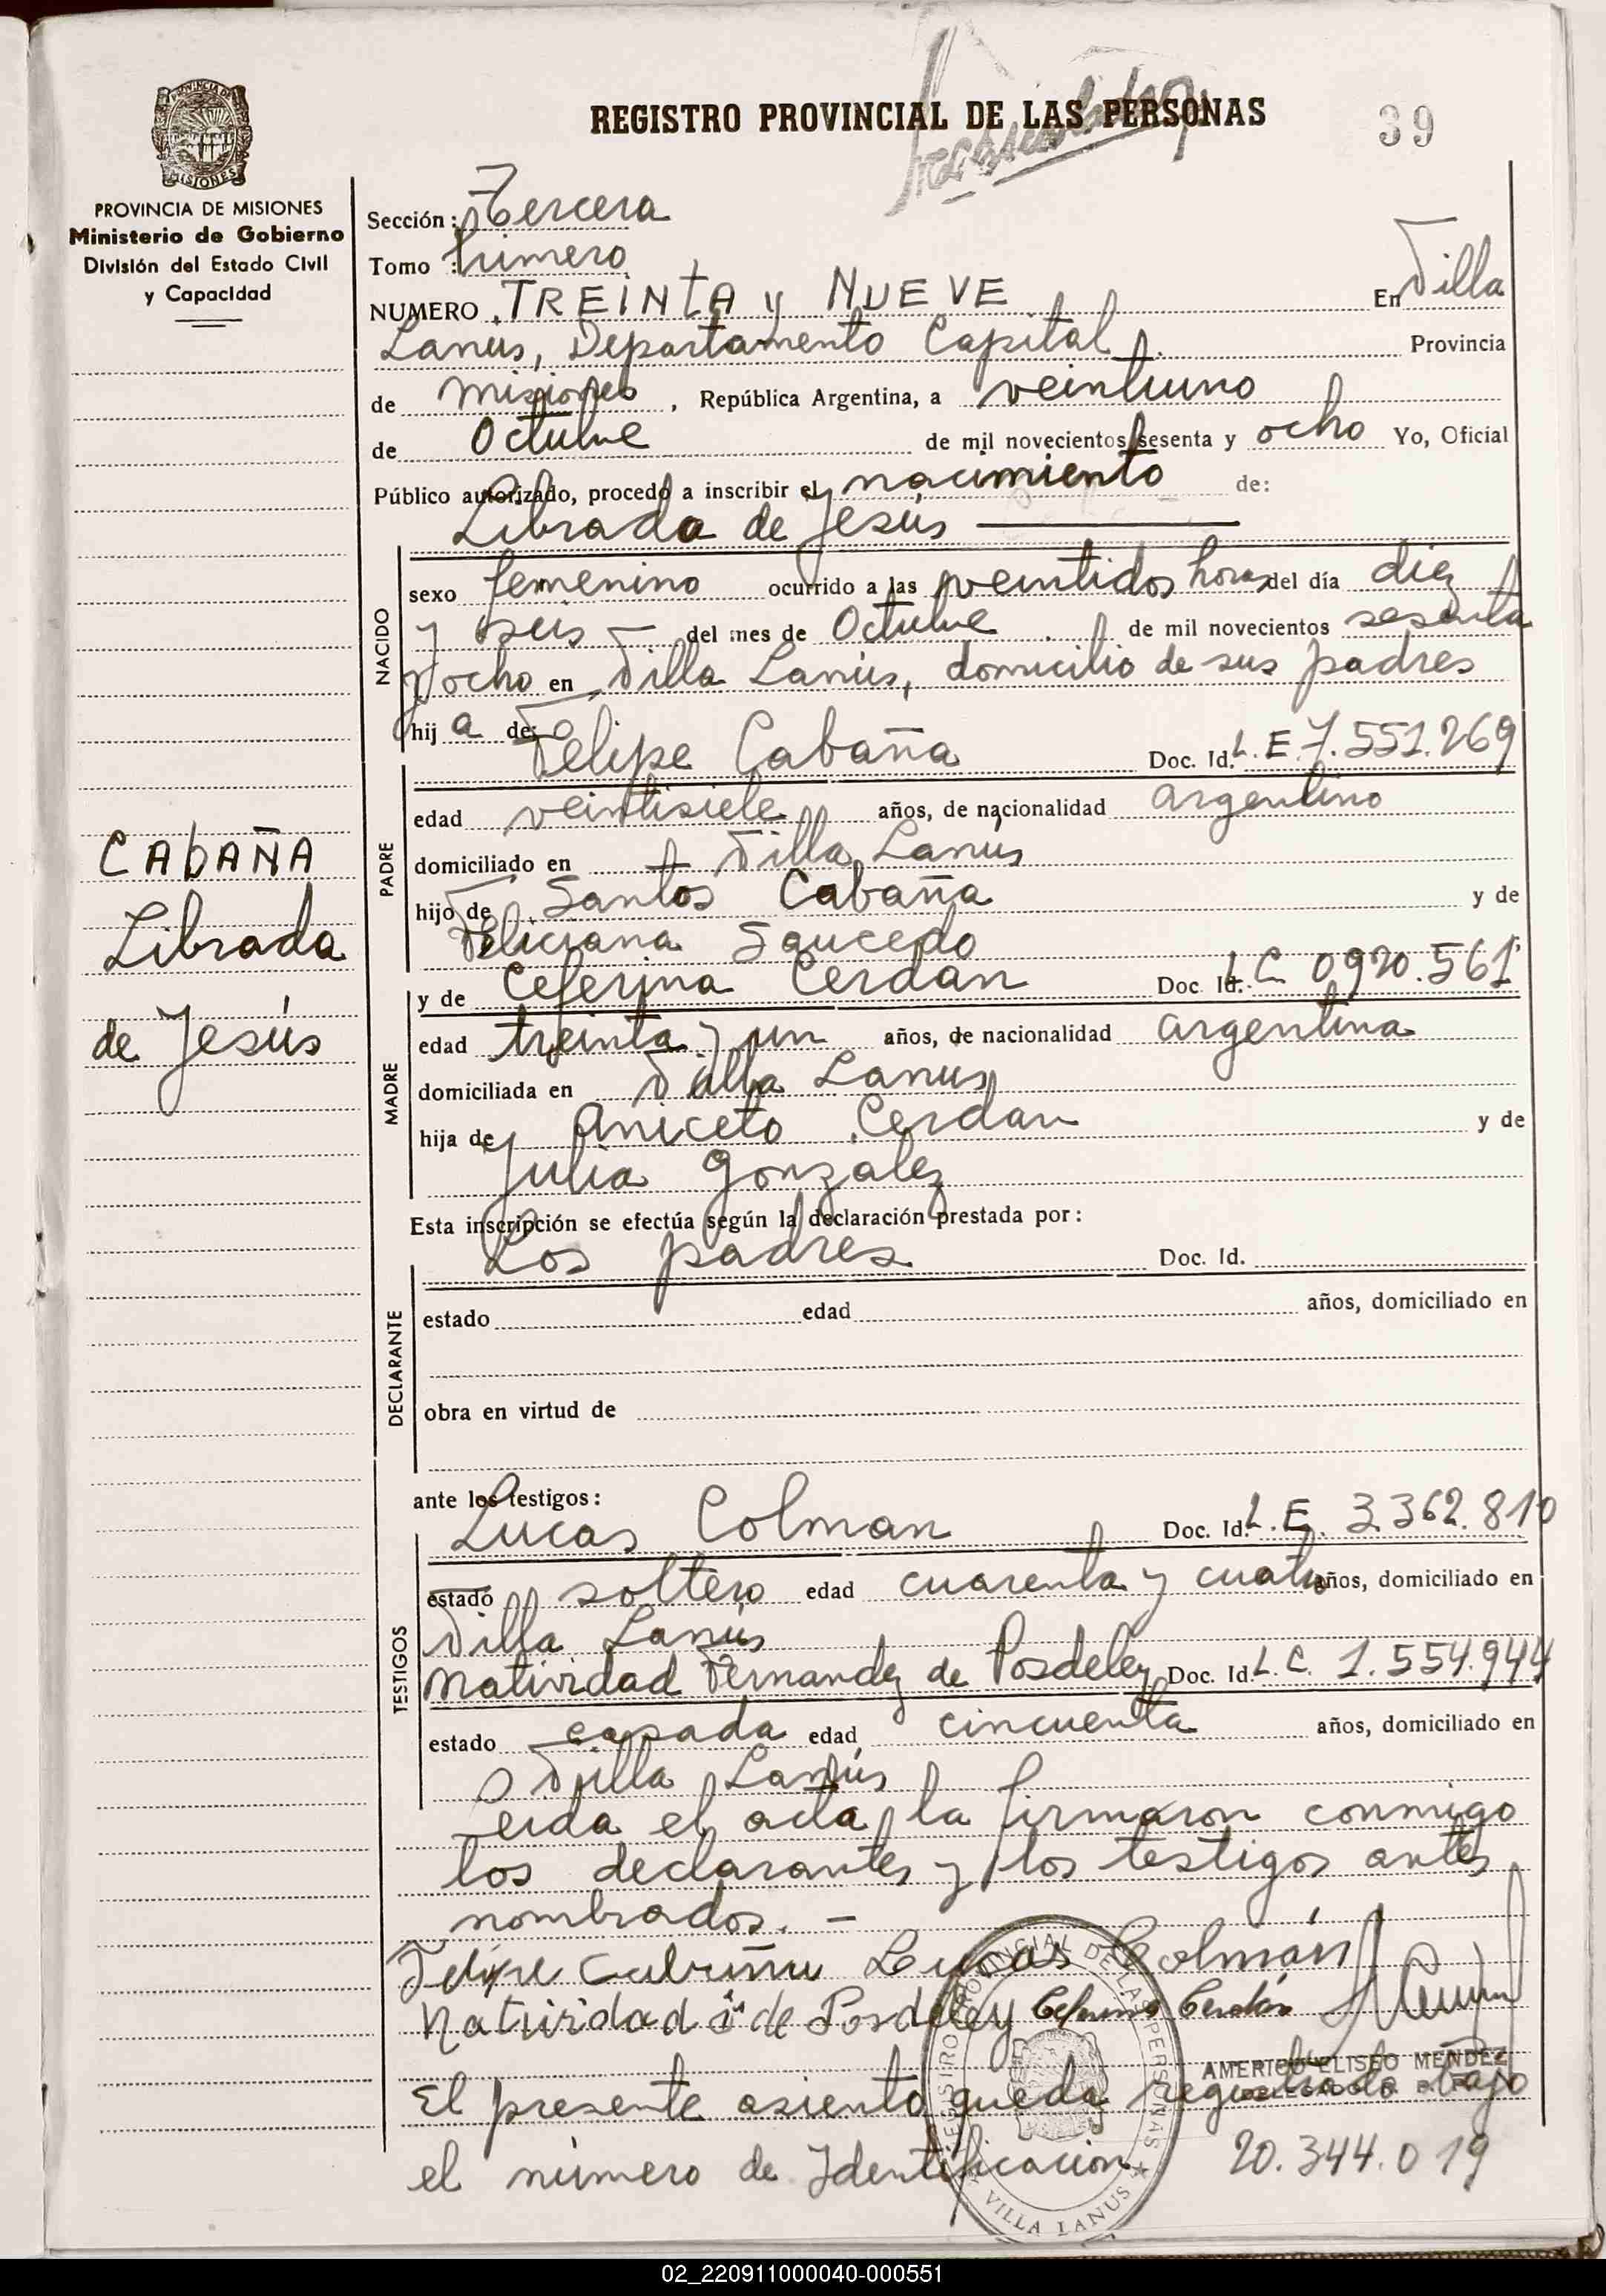 REGISTRO PROVINCIAL DE LAS PERSONAS
39
PROVINCIA DE MISIONES
MISIONES
PROVINCIA DE MISIONES
Ministerio de Gobierno
División del Estado Civil
y Capacidad
Sección: Tercera
Tomo : Primero
NUMERO TREINTA y NUEVE En Villa
Lanus, Departamento Capital Provincia
de Misiones, República Argentina, a veintiuno
de Octubre de mil novecientos sesenta y ocho Yo, Oficial
Público autorizado, procedo a inscribir el nacimiento de:
Librada de Jesús
NACIDO
sexo femenino ocurrido a las veintidos horas del día diez
y seis del mes de Octubre de mil novecientos sesenta
y ocho en Villa Lanús, domicilio de sus padres
hij a de:
Felipe Cabaña Doc. Id. L. E 7.551.269
PADRE
edad veintisiete años, de nacionalidad argentino
domiciliado en Villa Lanús
hijo de Santos Cabaña y de
Feliciana Saucedo
CABAÑA
Librada
de Jesús
y de Ceferina Cerdan Doc. Id. L C 0920.561
MADRE
edad treinta y un años, de nacionalidad argentina
domiciliada en Villa Lanus
hija de Aniceto Cerdan y de
Julia Gonzalez
Esta inscripción se efectúa según la declaración prestada por:
Los padres Doc. Id.
DECLARANTE
estado edad años, domiciliado en
obra en virtud de
ante los testigos:
Lucas Colman Doc. Id. L. E. 3362.810
TESTIGOS
estado soltero edad cuarenta y cuatro años, domiciliado en
Villa Lanús
Natividad Fernandez de Posdeley Doc. Id. L. C. 1.554.944
estado casada edad cincuenta años, domiciliado en
Villa Lanús
Leida el acta, la firmaron conmigo
los declarantes y los testigos antes
nombrados. –
Felipe Cabaña Lucas Colmán
Natividad de Posdeley Ceferina Cerdán
REGISTRO PROVINCIAL DE LAS PERSONAS
VILLA LANUS
AMERICO ELISEO MENDEZ
El presente asiento queda registrado bajo
el número de Identificacion 20.344.019
02_220911000040-000551